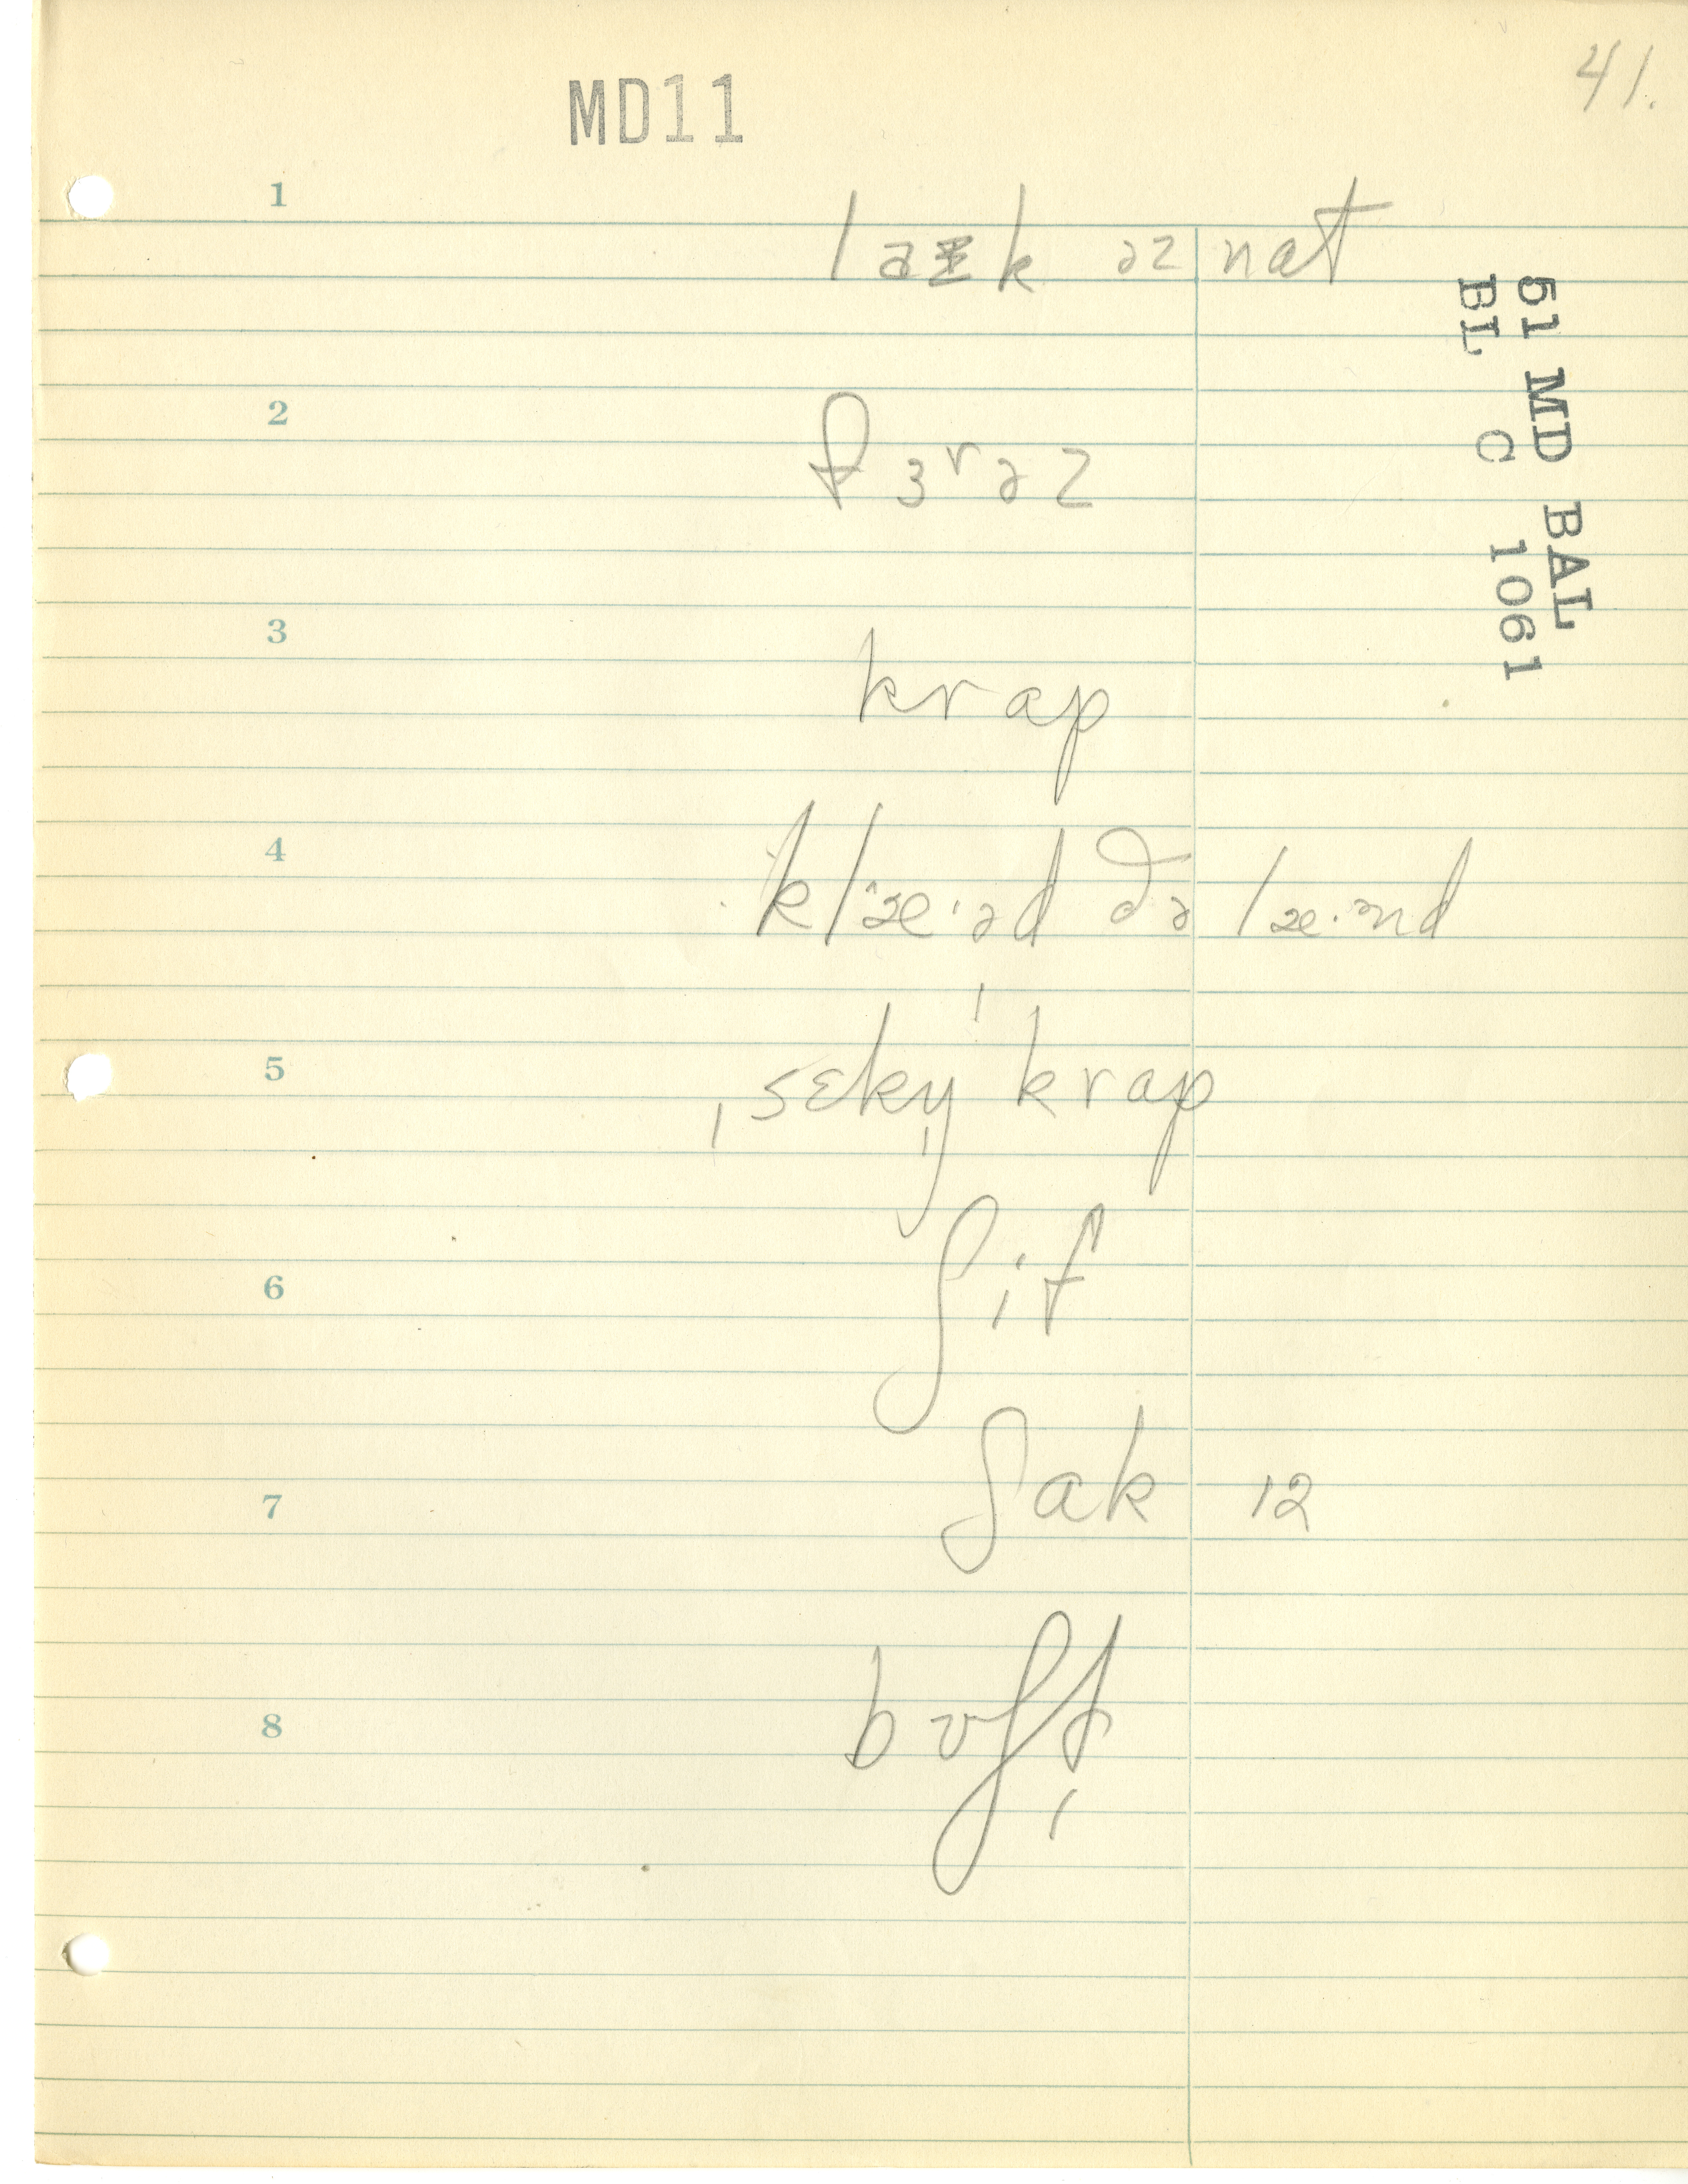 MD11
41.
1
laɪk əz nat
51 MD BAL
BL C 1061
2
fɜrəz
3
krap
4
klæ·əd ðə læ·ənd
5
ˌsɛkn̩ ˈkrap
6
ʃif
7
ʃak 12
8
bʊʃl̩